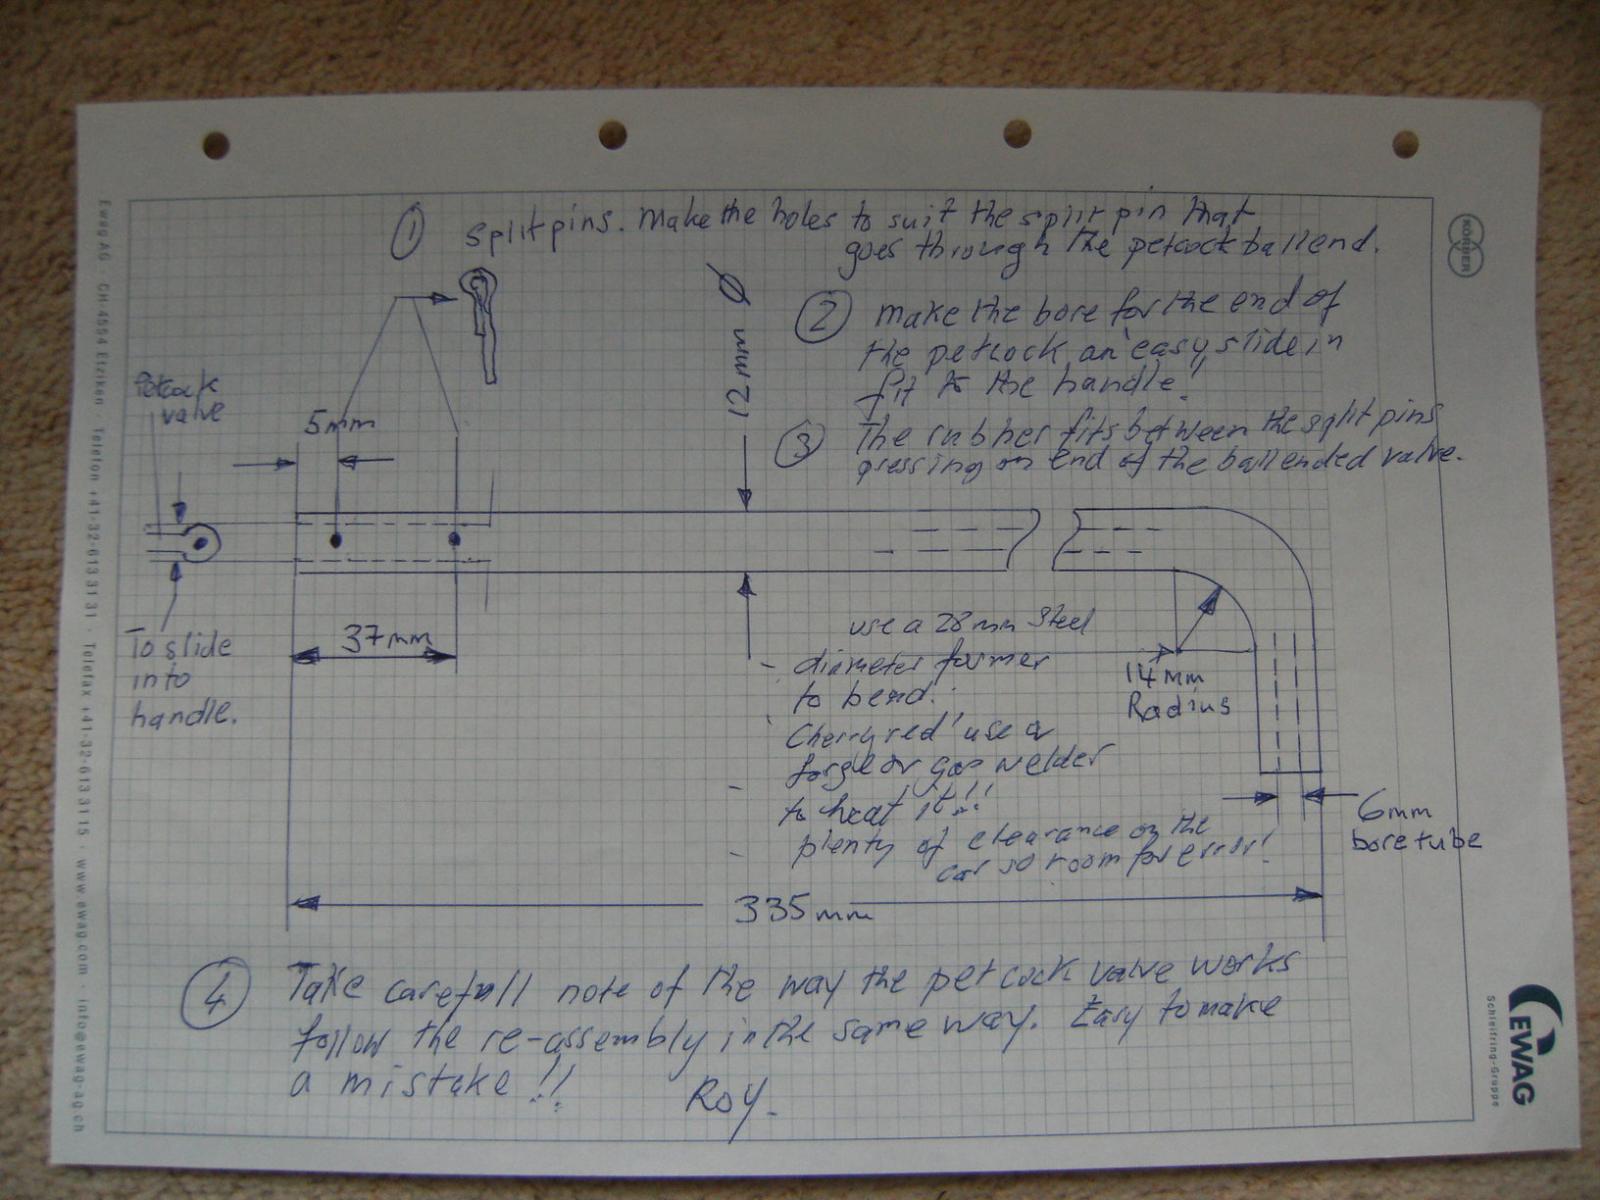 ① Split pins. Make the holes to suit the split pin that
goes through the petcock ball end.
② make the bore for the end of
the petcock an 'easy, slide in
fit to the handle!
③ The rubber fits between the split pins
pressing on end of the ball ended valve.
Petcock
valve
5mm
12mm Ø
To slide
into
handle.
37mm
use a 28mm steel
- diameter former
to bend.
'Cherry red' use a
forge or gas welder
- to heat it!!
- plenty of clearance on the
car so room for error!
14mm
Radius
6mm
bore tube
335mm
④ Take carefull note of the way the petcock valve works
follow the re-assembly in the same way. Easy to make
a mistake!!
Roy.
Ewag AG · CH-4554 Etziken · Telefon +41-32-613 31 31 · Telefax +41-32-613 31 15 · www.ewag.com · info@ewag-ag.ch
KÖRBER
EWAG
Schleifring-Gruppe